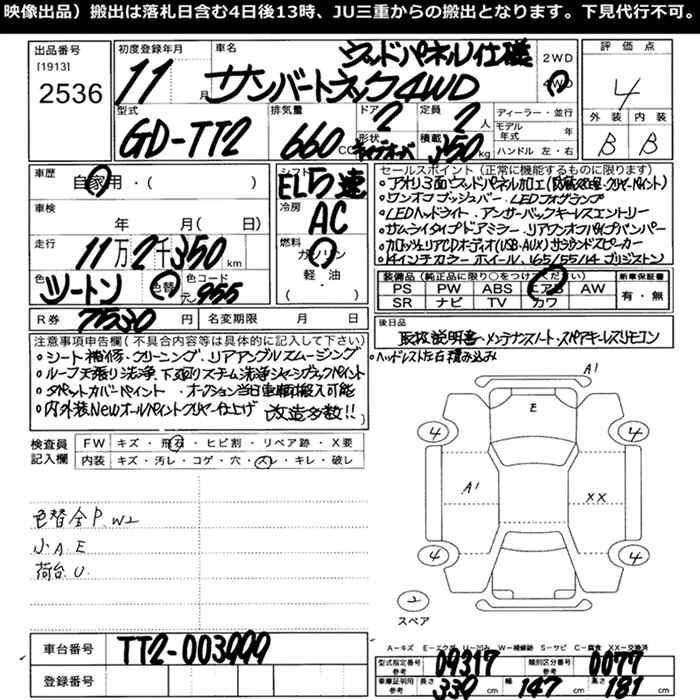 映像出品）搬出は落札日含む4日後13時、JU三重からの搬出となります。下見代行不可。
出品番号 [1913] 2536
初度登録年月 11 月
車名 ウッドパネル仕様
サンバートラック4WD
2WD
4WD
評価点 4
外装 B 内装 B
型式 GD-TT2
排気量 660 CC
ドア 2
形状
定員 2 人
積載 350 kg
ディーラー・並行
モデル年式 年
ハンドル 左・右
車歴 自家用・( )
車検 年 月( 日)
走行 11万2千350 km
色 ツートン 色替
色コード 955
シフト EL5速
冷房 AC
燃料 ガソリン
軽・油
( )
R券 7530 円
名変期限 月 日
セールスポイント（正常に機能するものに限ります）
・アオリ3面ウッドパネル加工(防腐処理・クリヤーペイント)
・ワンオフプッシュバー・LEDフォグランプ
・LEDヘッドライト・アンサーバックキーレスエントリー
・サムライタイプドアミラー・リアワンオフパイプバンパー
・カロッツェリアCDオーディオ(USB・AUX)サラウンドスピーカー
・14インチカラーホイール・165/55/14ブリジストン
装備品（純正品に限り○をつけてください）
PS PW ABS エアB AW
SR ナビ TV カワ
新車保証書 有・無
後日品
取扱説明書・メンテナンスノート・スペアキーレスリモコン
・ヘッドレスト左右積み込み
注意事項申告欄(不具合内容等は具体的に記入して下さい)
・シート補修・クリーニング・リアアングルスムージング
・ルーフ天張り洗浄、下廻りスチーム洗浄シャーシブラックペイント
・タペットカバーペイント・オークション当日車両搬入可能
・内外装Newオールペイントクリヤー仕上げ 改造多数!!
検査員記入欄
FW キズ・飛石・ヒビ割・リペア跡・X要
内装 キズ・汚レ・コゲ・穴・スレ・キレ・破レ
色替全P.W2
小A.E
荷台U.
A1
E
4
4
A1
XX
4
4
2
スペア
A-キズ E-エクボ U-凹み W-補修跡 S-サビ C-腐食 XX-交換済
車台番号 TT2-003999
登録番号
型式指定番号 参考 09317
類別区分番号 参考 0077
車庫証明用 参考 長さ 330 cm 幅 147 cm 高さ 181 cm